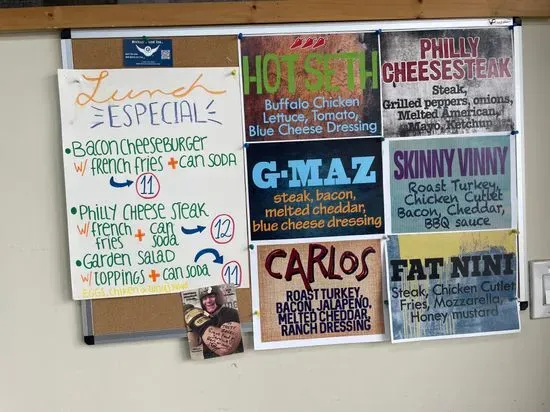 Lunch
ESPECIAL
• BACON CHEESEBURGER
W/ FRENCH FRIES + CAN SODA
11
• PHILLY CHEESE STEAK
W/ FRENCH FRIES + CAN SODA
12
• GARDEN SALAD
W/ TOPPINGS + CAN SODA
11
HOT SETH
Buffalo Chicken
Lettuce, Tomato,
Blue Cheese Dressing
PHILLY
CHEESESTEAK
Steak,
Grilled peppers, onions,
Melted American,
Mayo, Ketchup
G-MAZ
steak, bacon,
melted cheddar,
blue cheese dressing
SKINNY VINNY
Roast Turkey,
Chicken Cutlet
Bacon, Cheddar,
BBQ sauce
CARLOS
ROAST TURKEY,
BACON, JALAPENO,
MELTED CHEDDAR,
RANCH DRESSING
FAT NINI
Steak, Chicken Cutlet
Fries, Mozzarella,
Honey mustard